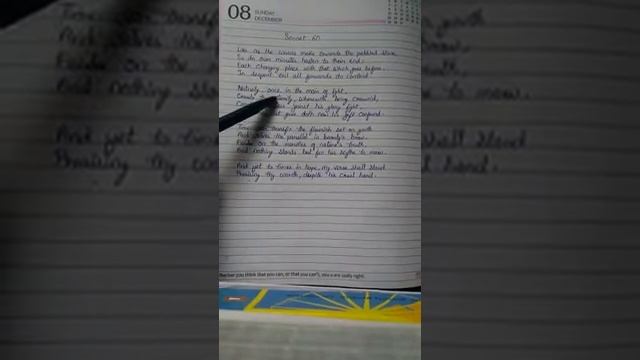 08 SUNDAY
DECEMBER
Sonnet 60
Like as the waves make towards the pebbled shore,
So do our minutes hasten to their end;
Each changing place with that which goes before,
In sequent toil all forwards do contend.
Nativity, once in the main of light,
Crawls to maturity, wherewith being crown'd,
'gainst his glory fight,
that gave doth now his gift confound.
Time doth transfix the flourish set on youth
And delves the parallels in beauty's brow,
Feeds on the rarities of nature's truth,
And nothing stands but for his scythe to mow.
And yet to times in hope, my verse shall stand
Praising thy worth, despite his cruel hand.
ther you think that you can, or that you can't, you are usually right.